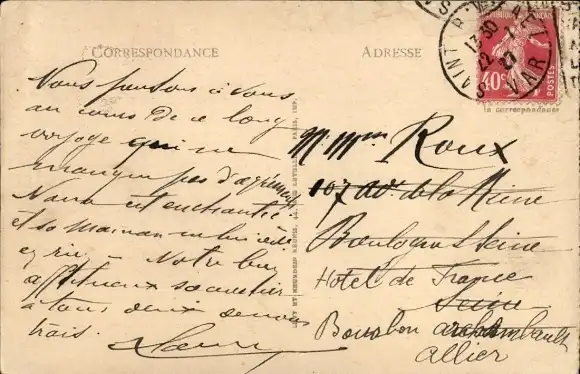 CORRESPONDANCE
ADRESSE
SAINT R VAR
13 30
22 1
27
RÉPUBLIQUE FRANÇAISE
40c
POSTES
la correspondance
Nous pensons à vous
au cours de ce long
voyage qui ne
manque pas d'agrément
Nana est enchantée
et sa maman lui cède
Notre bon
affectueux souvenir
à tous deux
trois.
M. Mme Roux
107 av. de la Reine
Boulogne s/ Seine
Hotel de France
Seine
Bourbon archambault
Allier